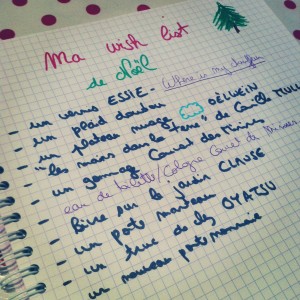 Ma wish list
de Noël
- un vernis ESSIE - Where is my chauffeur
- un plaid doudou
- un plateau nuage BELLWEIN
- "les mains dans la terre" de Camille MULL
- un gommage Carnet des Muses
eau de toilette/Cologne Carnet de Muses
- livre sur le jardin CLAUSE
- un porte manteau
- un truc de chez OYATSU
- un nouveau porte monnaie